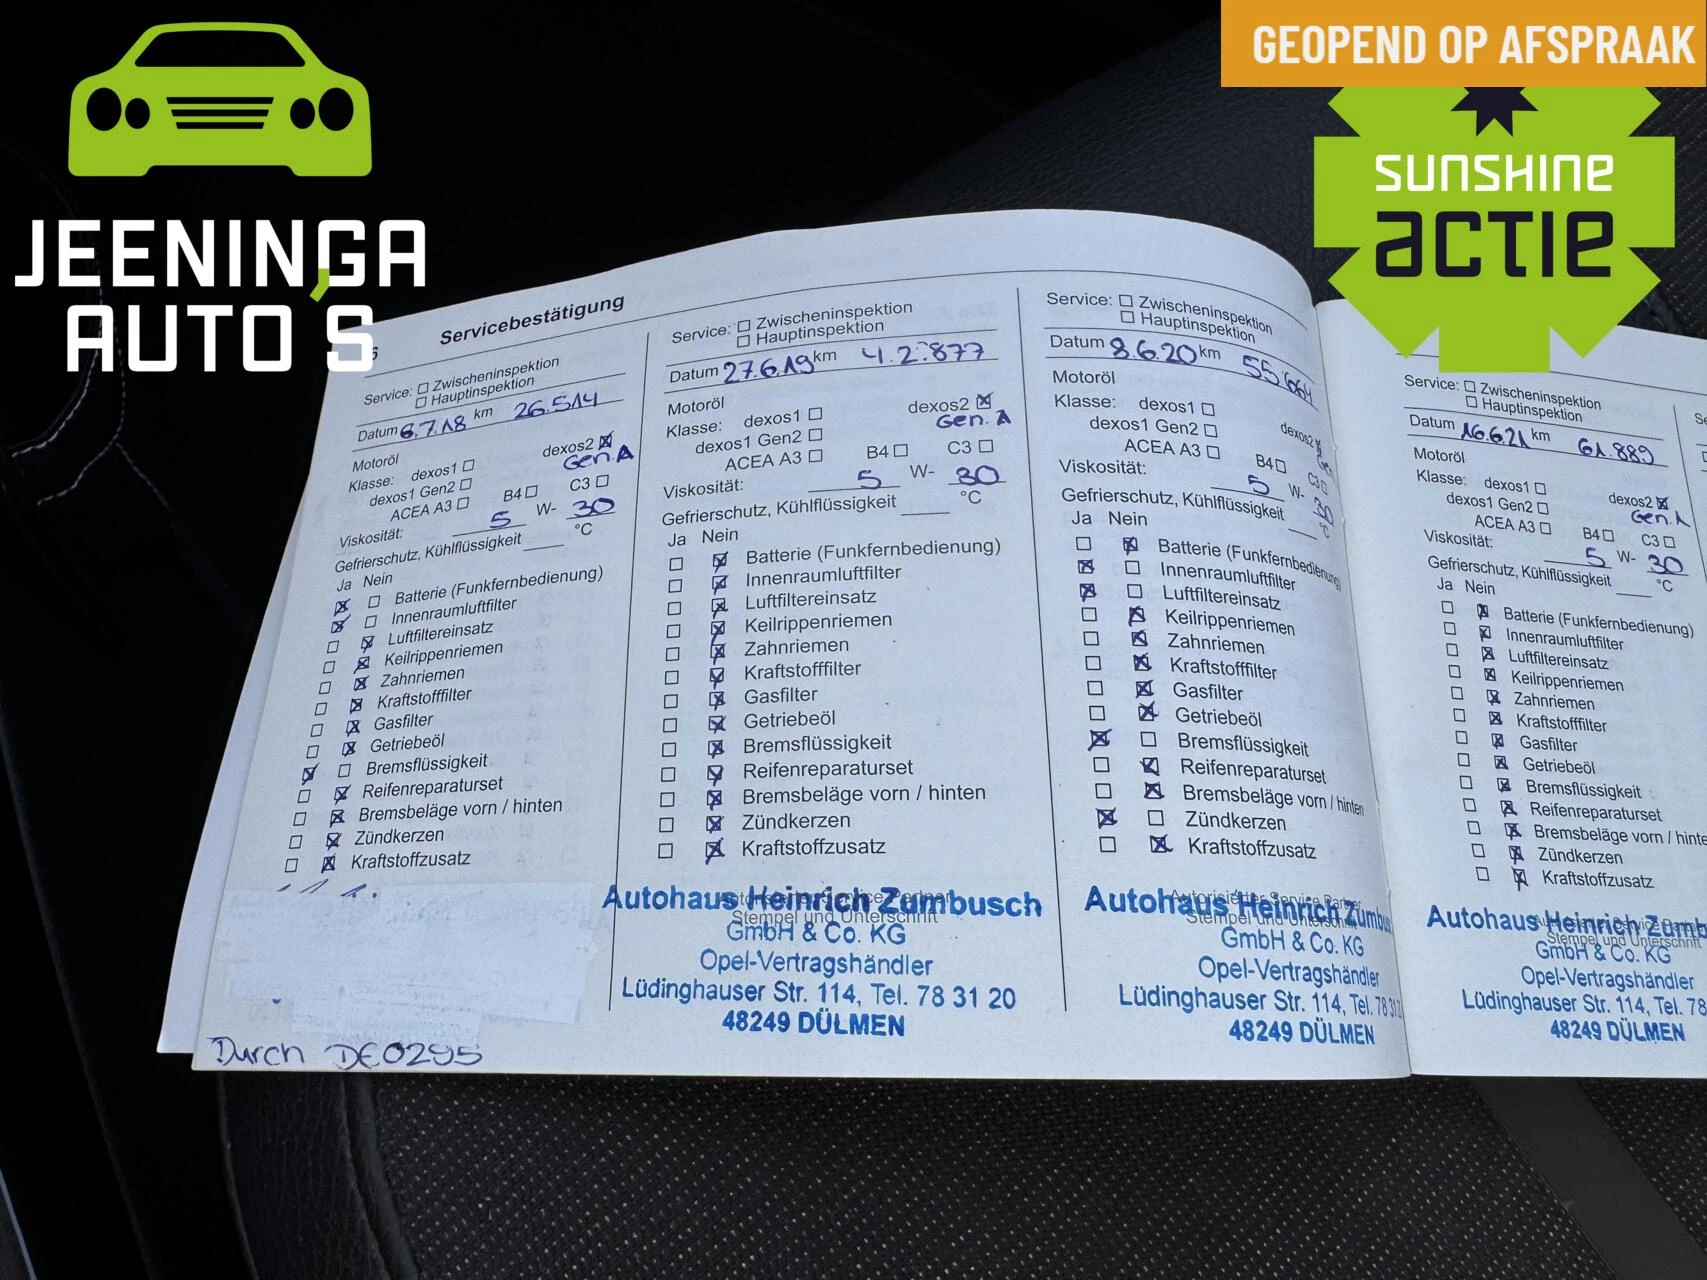 GEOPEND OP AFSPRAAK
SUNSHINE
ACTIE
JEENINGA
AUTO'S
6
Servicebestätigung
Service: Zwischeninspektion
Hauptinspektion
Datum 6.7.18 km 26.514
Motoröl
Klasse: dexos1 dexos2
Gen. A
dexos1 Gen2
ACEA A3 B4 C3
Viskosität: 5 W- 30
Gefrierschutz, Kühlflüssigkeit °C
Ja Nein
Batterie (Funkfernbedienung)
Innenraumluftfilter
Luftfiltereinsatz
Keilrippenriemen
Zahnriemen
Kraftstofffilter
Gasfilter
Getriebeöl
Bremsflüssigkeit
Reifenreparaturset
Bremsbeläge vorn / hinten
Zündkerzen
Kraftstoffzusatz
Durch DE0295
Service: Zwischeninspektion
Hauptinspektion
Datum 27.6.19 km 42.877
Motoröl
Klasse: dexos1 dexos2
Gen. A
dexos1 Gen2
ACEA A3 B4 C3
Viskosität: 5 W- 30
Gefrierschutz, Kühlflüssigkeit °C
Ja Nein
Batterie (Funkfernbedienung)
Innenraumluftfilter
Luftfiltereinsatz
Keilrippenriemen
Zahnriemen
Kraftstofffilter
Gasfilter
Getriebeöl
Bremsflüssigkeit
Reifenreparaturset
Bremsbeläge vorn / hinten
Zündkerzen
Kraftstoffzusatz
Autorisierter Service Partner
Autohaus Heinrich Zumbusch
Stempel und Unterschrift
GmbH & Co. KG
Opel-Vertragshändler
Lüdinghauser Str. 114, Tel. 78 31 20
48249 DÜLMEN
Service: Zwischeninspektion
Hauptinspektion
Datum 8.6.20 km 55.664
Motoröl
Klasse: dexos1 dexos2
dexos1 Gen2
ACEA A3 B4 C3
Viskosität: 5 W- 30
Gefrierschutz, Kühlflüssigkeit °C
Ja Nein
Batterie (Funkfernbedienung)
Innenraumluftfilter
Luftfiltereinsatz
Keilrippenriemen
Zahnriemen
Kraftstofffilter
Gasfilter
Getriebeöl
Bremsflüssigkeit
Reifenreparaturset
Bremsbeläge vorn / hinten
Zündkerzen
Kraftstoffzusatz
Autorisierter Service Partner
Autohaus Heinrich Zumbus
Stempel und Unterschrift
GmbH & Co. KG
Opel-Vertragshändler
Lüdinghauser Str. 114, Tel. 78 31 2
48249 DÜLMEN
Service: Zwischeninspektion
Hauptinspektion
Datum 16.6.21 km 61.889
Motoröl
Klasse: dexos1 dexos2
Gen. A
dexos1 Gen2
ACEA A3 B4 C3
Viskosität: 5 W- 30
Gefrierschutz, Kühlflüssigkeit °C
Ja Nein
Batterie (Funkfernbedienung)
Innenraumluftfilter
Luftfiltereinsatz
Keilrippenriemen
Zahnriemen
Kraftstofffilter
Gasfilter
Getriebeöl
Bremsflüssigkeit
Reifenreparaturset
Bremsbeläge vorn / hinte
Zündkerzen
Kraftstoffzusatz
Autohaus Heinrich Zumb
Stempel und Unterschrift
GmbH & Co. KG
Opel-Vertragshändler
Lüdinghauser Str. 114, Tel. 78
48249 DÜLMEN